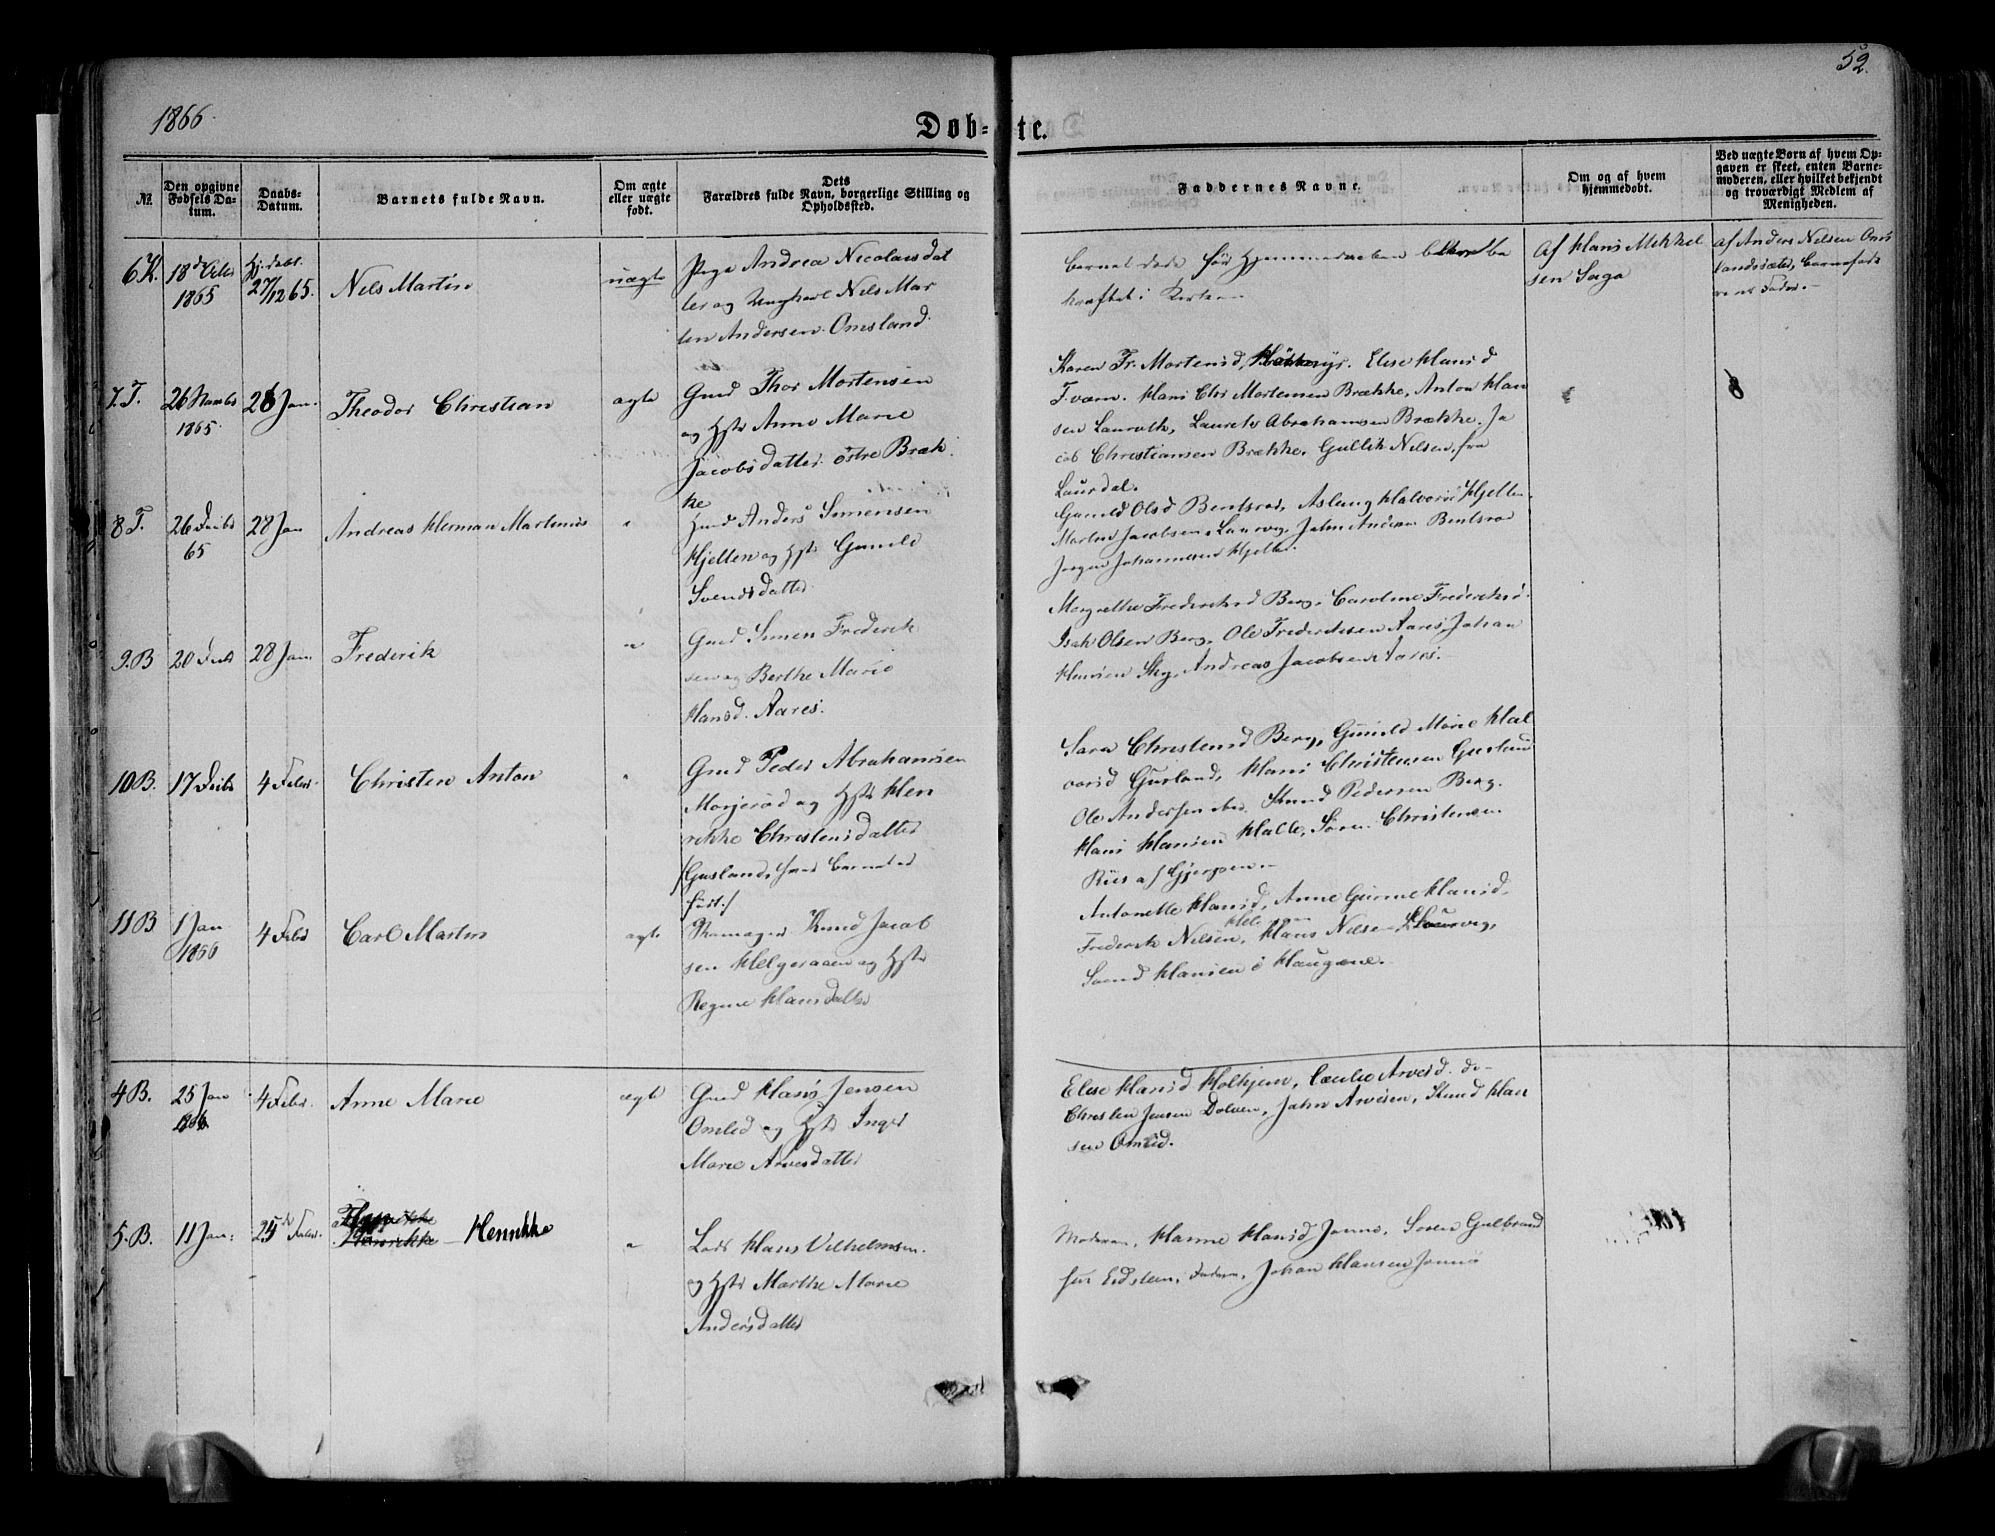 1866.
52.
Døb=te.
№
Den opgivne Fødsels Da-tum.
Daabs-Datum.
Barnets fulde Navn.
Om ægte eller uægte født.
Dets Forældres fulde Navn, borgerlige Stilling og Opholdssted.
Faddernes Navne.
Om og af hvem hjemmedøbt.
Ved uægte Børn af hvem Op-gaven er skeet, enten Barne-moderen, eller hvilket bekjendt og troværdigt Medlem af Menigheden.
6 K.
1865
27/12 65.
Nels Martin
uægte
Pige Andrea Nicolaisdat
ter og Ungkarl Nils Mar
tin Andersen Omsland.
Barnet døde før
kræftet i Kirken
Af Hans Mikkel
sen Saga
af Anders Nilsen Oms
landsæter, Barnefade
rens Fader.
7. T.
26 Novbr
1865.
28 Jan.
Theodor Christian
ægte
Gmd Thor Mortensen
og Hstr Anne Marie
Jacobsdatter østre Bræk
ke
Karen Fr. Mortensd, Elise Hansd
Hans Chr Mortensen Brække, Anton Han
sen Lauvalh, Laurits Abrahamsen Brække. Ja
cob Christiansen Brække, Gullik Nilsen, fra
Laurdal.
8 T.
26 Debr
65
28 Jan
Andreas Herman Martinius
"
Gmd Anders Simensen
Hjelten og Hstr Gunild
Svendsdatter
Gunild Olsd Bentsrød, Aslaug Halvorsd Hjelten,
Martin Jacobsen, Laurvig, John Andersen Bentsrød
Jørgen Johannesen Hjelten.
9. B
20
28 Jan
Frederik
"
Gmd Simen Frederik
sen og Berthe Marie
Hansd. Aarøs.
Margrethe Frederiksd Berg, Caroline Frederiksd.
Isak Olsen Berg, Ole Frederiksen Aarøs, Johan
Hansen Sky, Andreas Jacobsen Aarøs.
10 B.
17 Debr
4 Febr.
Christen Anton
"
Gmd Peder Abrahamsen
Morjerød og Hstr Hen
rikke Christensdatter
/Gusland, hvor Barnet er
født./
Sara Christensd Berg, Gunild Marie Hal
vorsd Gusland, Hans Christensen Gusland
Ole Andersen ibd. Knud Pedersen Berg.
Hans Hansen Halle, Søren Christensen
Riis af Gjerpen.
11 B
1 Jan
1866
4 Febr
Carl Martin
ægte
Skomager Knud Jacob
sen Helgeraaen og Hstr
Regine Hansdatter
Antonette Hansd, Anne Gurine Hansd.
Frederik Nilsen, Hans Nilsen Laurvig,
Svend Hansen i Haugene.
4 B.
25 Jan
1866
4 Febr.
Anne Marie
ægte
Gmd Hans Jensen
Omlid og Hstr Inger
Marie Arvesdatter
Else Hansd Holhjem, Cecilie Arvesd. do
Christen Jensen Dolven, John Arvesen, Knud Han
sen Omlid.
5. B.
11 Jan.
25 Febr.
Henrikke
"
Lods Hans Vilhelmsen
og Hstr Marthe Marie
Andersdatter
Moderen, Hanne Hansd Jonnø, Søren Gulbrand
sen Eidsten, Faderen, Johan Hansen Jonnø